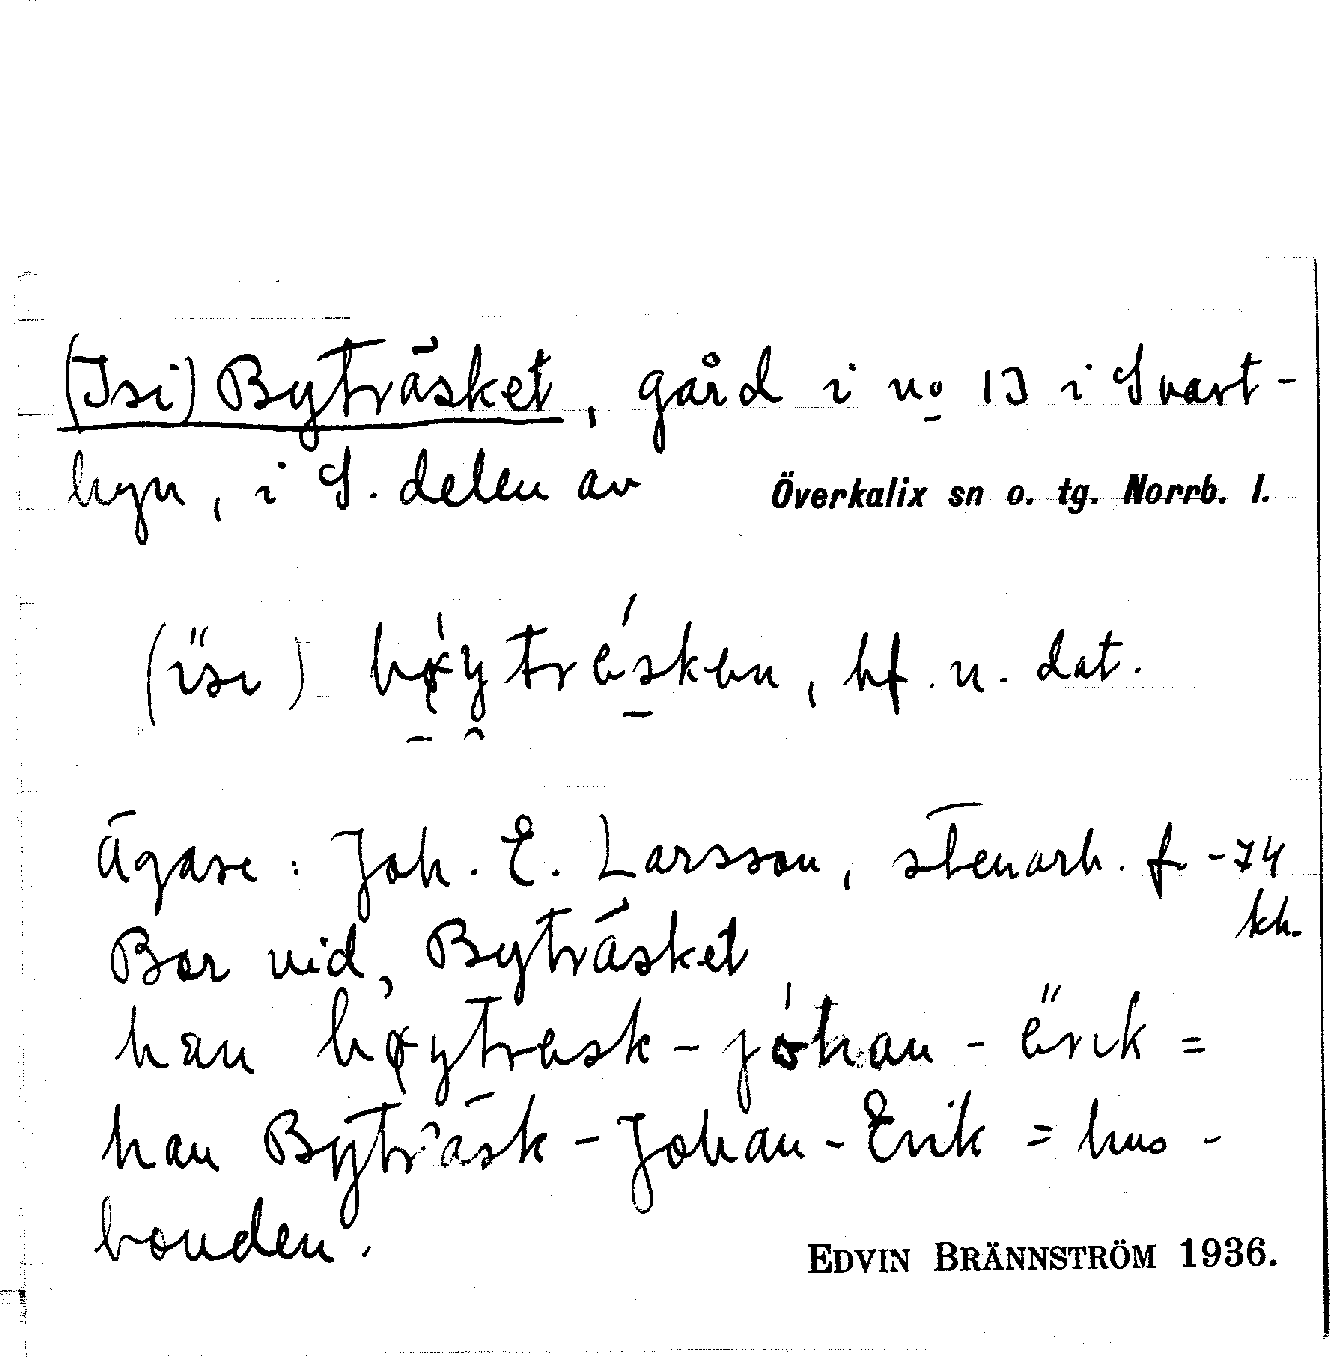 (Isi) Byträsket, gård i no 13 i Svart-
byn, i S. delen av Överkalix sn o. tg. Norrb. l.
(ïsi) bǿytréskan, bf. n. dat.
Ägare: Joh. E. Larsson, stenarb. f. -74
kb.
Bor vid Byträsket
han bǿytrask-jóhan-ërik =
han Byträsk-Johan-Erik = hus-
bonden.
EDVIN BRÄNNSTRÖM 1936.